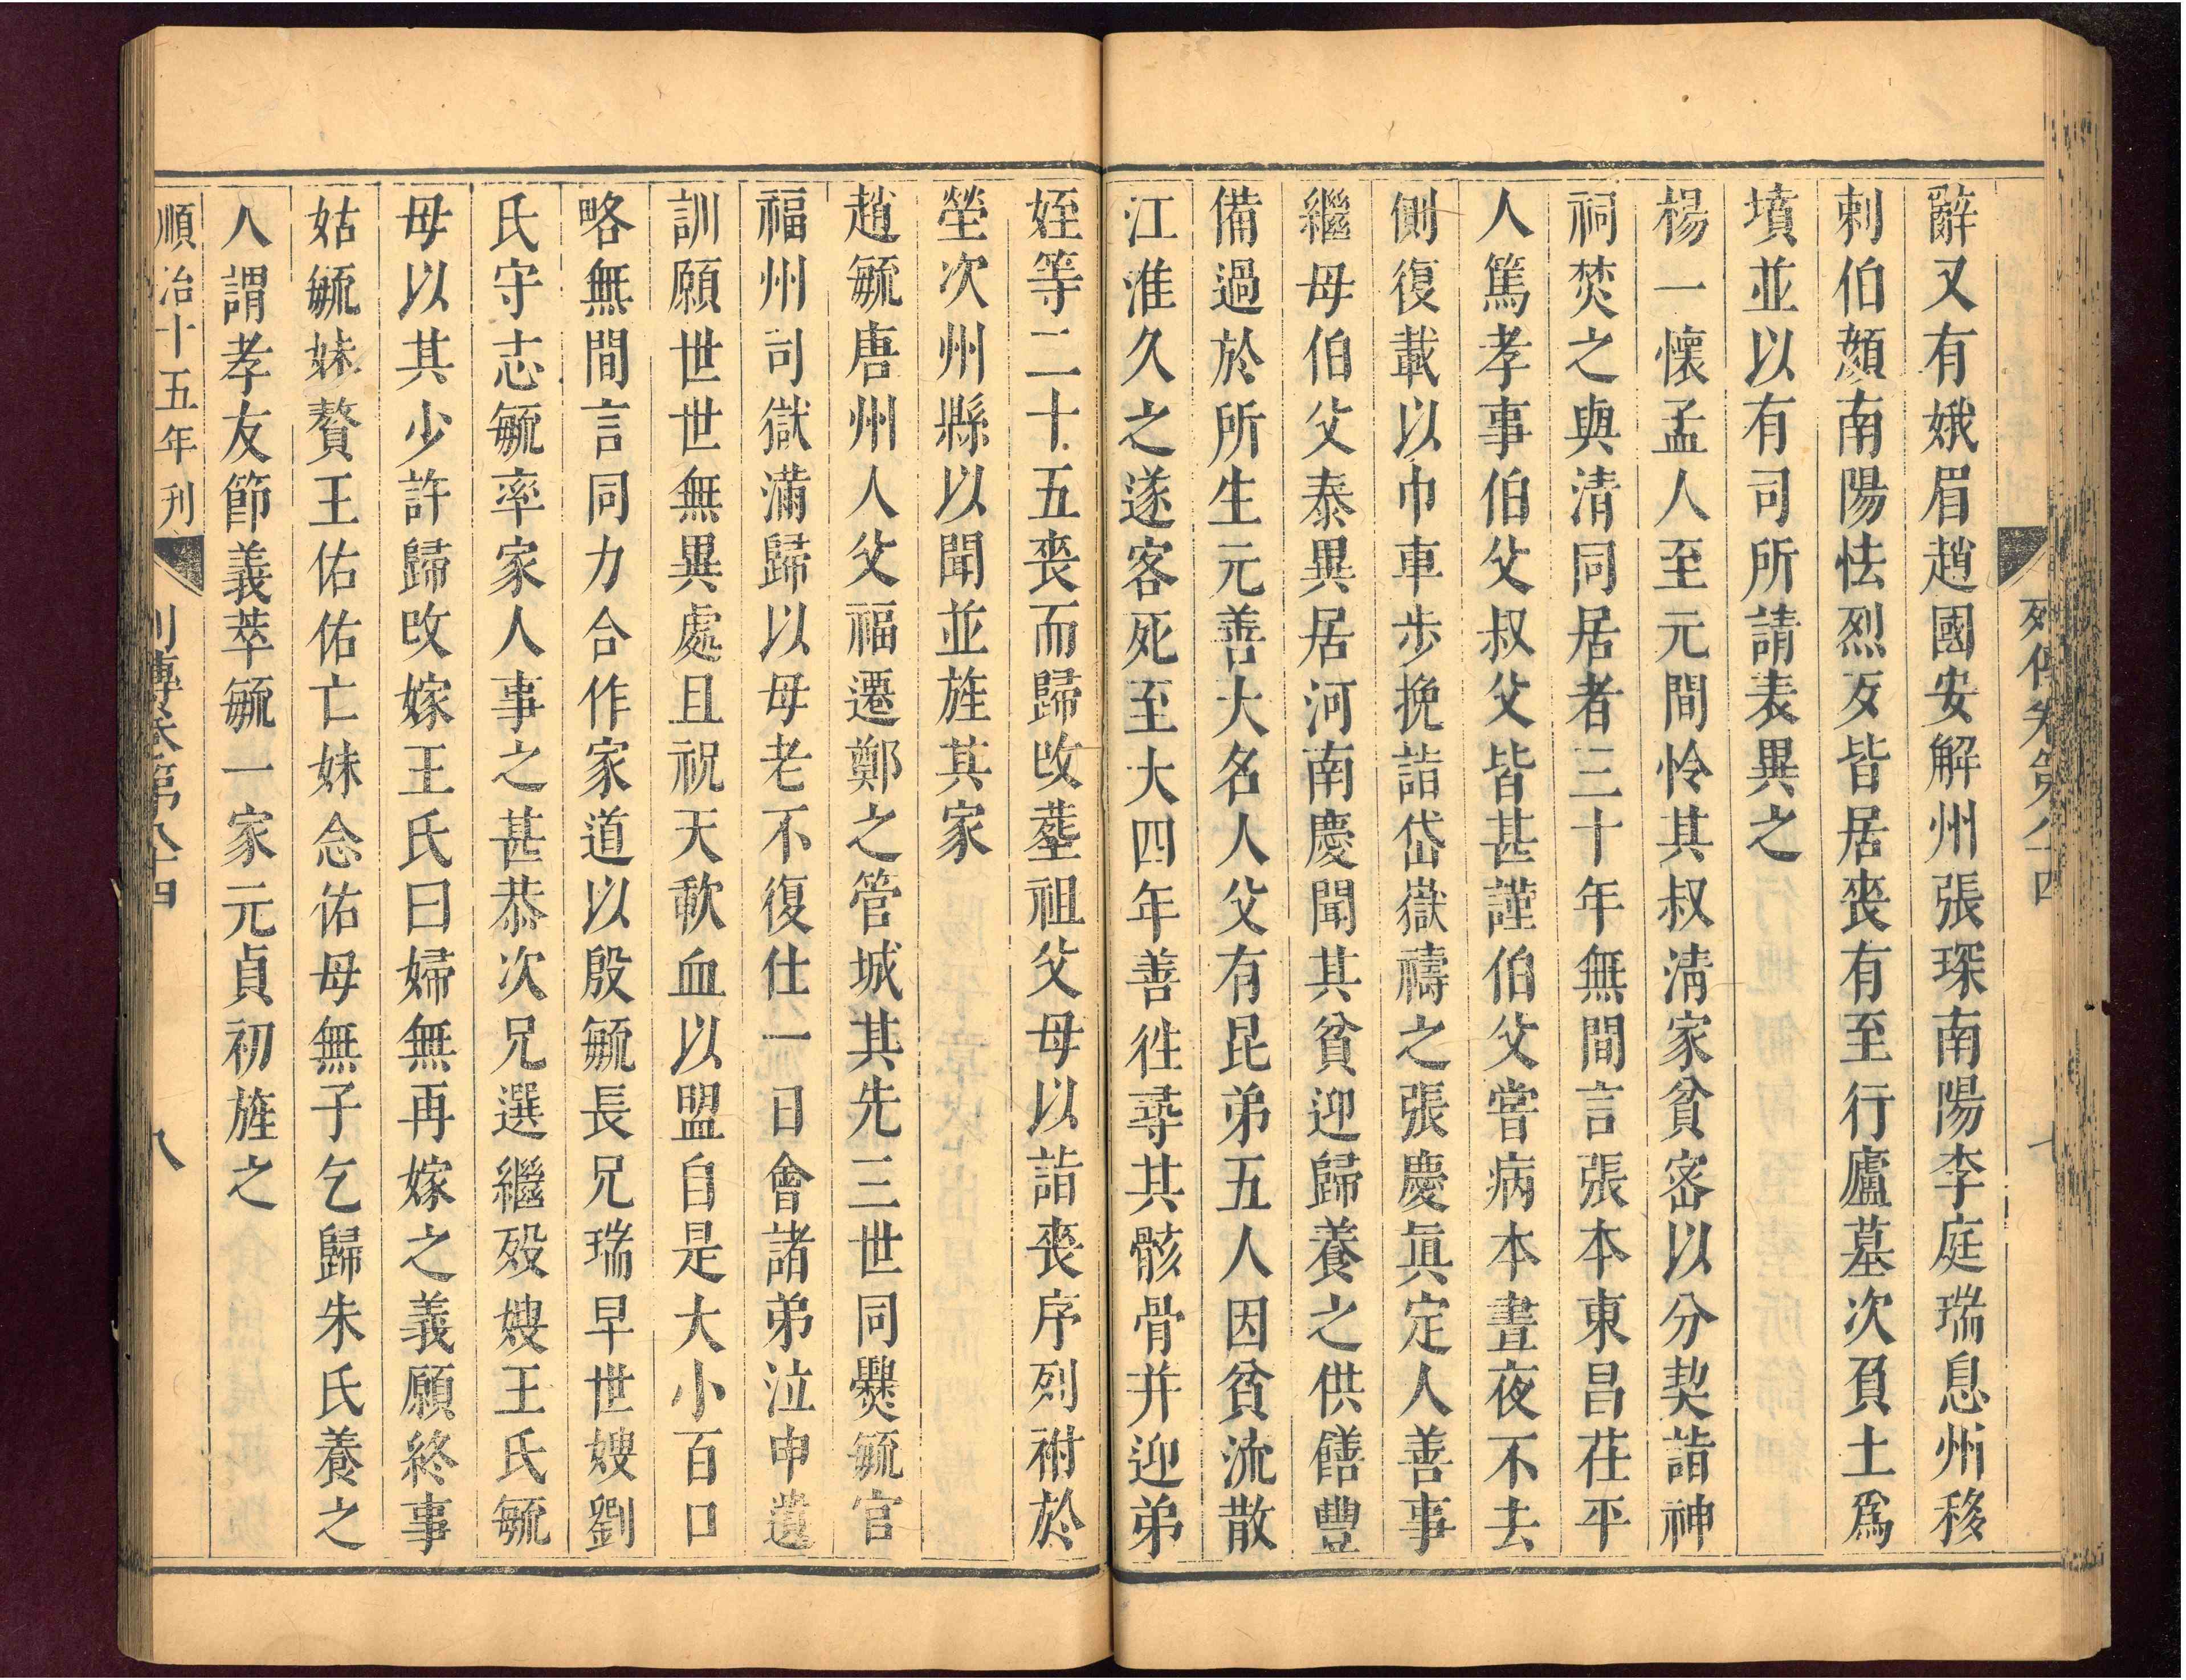 辭又有娥眉趙國安解州張琛南陽李庭瑞息州移
剌伯顏南陽怯烈歹皆居喪有至行廬墓次負土爲
墳並以有司所請表異之
楊一懷孟人至元間怜其叔淸家貧密以分契詣神
祠焚之與清同居者三十年無間言張本東昌茌平
人篤孝事伯父叔父皆甚謹伯父嘗病本晝夜不去
側復載以巾車步挽詣岱嶽禱之張慶眞定人善事
繼母伯父泰異居河南慶聞其貧迎歸養之供饍豐
備過於所生元善大名人父有昆弟五人因貧流散
江淮久之遂客死至大四年善徃尋其骸骨并迎弟
姪等二十五喪而歸改塟祖父母以詣喪序列祔於
塋次州縣以聞並旌其家
趙毓唐州人父福遷鄭之管城其先三世同爨毓官
福州司獄滿歸以母老不復仕一日會諸弟泣申遺
訓願世世無異處且祝天歃血以盟自是大小百口
略無間言同力合作家道以殷毓長兄瑞早世嫂劉
氏守志毓率家人事之甚恭次兄選繼殁嫂王氏毓
母以其少許歸改嫁王氏曰婦無再嫁之義願終事
姑毓妹贅王佑佑亡妹念佑母無子乞歸朱氏養之
人謂孝友節義萃毓一家元貞初旌之
順治十五年刋
列傳卷第八十四
八